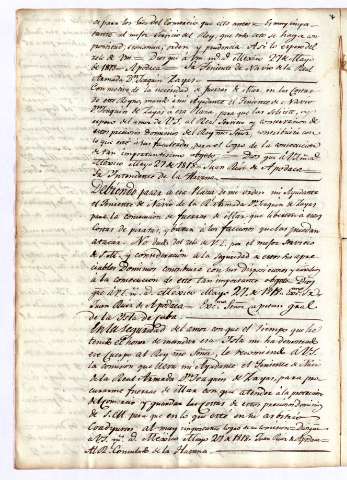 to para los fines del Comercio que esto anexo es muy impor-
tante al mejor servicio del Rey, que todo esto se haga con
prontitud, economia, orden y prudencia. Asi lo espero del
celo de Vm. Dios gue a Vm. ms. as. Mexico 27 de Mayo
de 1818. Apodaca Sr Teniente de Navio de la Real
Armada Dn Joaquin Zayas.
Con motivo de la necesidad de fuerzas de Mar, en las Costas
de este Reyno, mando a mi Ayudante el Teniente de Navio
Dn Joaquin de Zayas a esa Plaza, para que las solicite, y
espero del amor de V.S. al Real Servicio y conservacion de
estos preciosos dominios del Rey nro Señor,
lo que esté a sus facultades, para el logro de la consecucion
de tan importantisimo objeto. Dios gue a V.S. ms. as.
Mexico Mayo 27 de 1818. Juan Ruiz de Apodaca
Sr Intendente de la Havana.
Debiendo pasar a esa Plaza de mi orden mi Ayudante
el Teniente de Navio de la Rl Armada Dn Joaquin de Zayas
para la consecucion de fuerzas de Mar, que liberten a estas
Costas de piratas, y batan a los facciosos que las puedan
atacar. No dudo del celo de V.E. por el mejor servicio
de S.M. y consideracion a la seguridad de estos sus apre-
ciables Dominios contribuira con sus disposiciones y auxilios
a la consecucion de este tan importante objeto. Dios
gue a V.E. ms. as. Mexico Mayo 27 de 1818. Exmo Sr
Juan Ruiz de Apodaca. Exmo Señor Capitan gral
de la Isla de Cuba.
En la seguridad del amor con que el tiempo que he
tenido el honor de mandar esa Isla me ha demostrado
ese Cuerpo al Rey nro Señor, le recomiendo a V.S.
la comision que lleva mi Ayudante el Teniente de Navio
de la Real Armada Dn Joaquin de Zayas, para pro-
curarme fuerzas de Mar con que atender a la proteccion
del Comercio, y guardar las costas de estos preciosos dominios
de S.M. para que en lo que esté en su arbitrio
coadyuve, al muy importante logro de su comision. Dios gue
a V.S. ms. as. Mexico Mayo 27 de 1818. Juan Ruiz de Apodaca
Al Rl Consulado de la Havana.